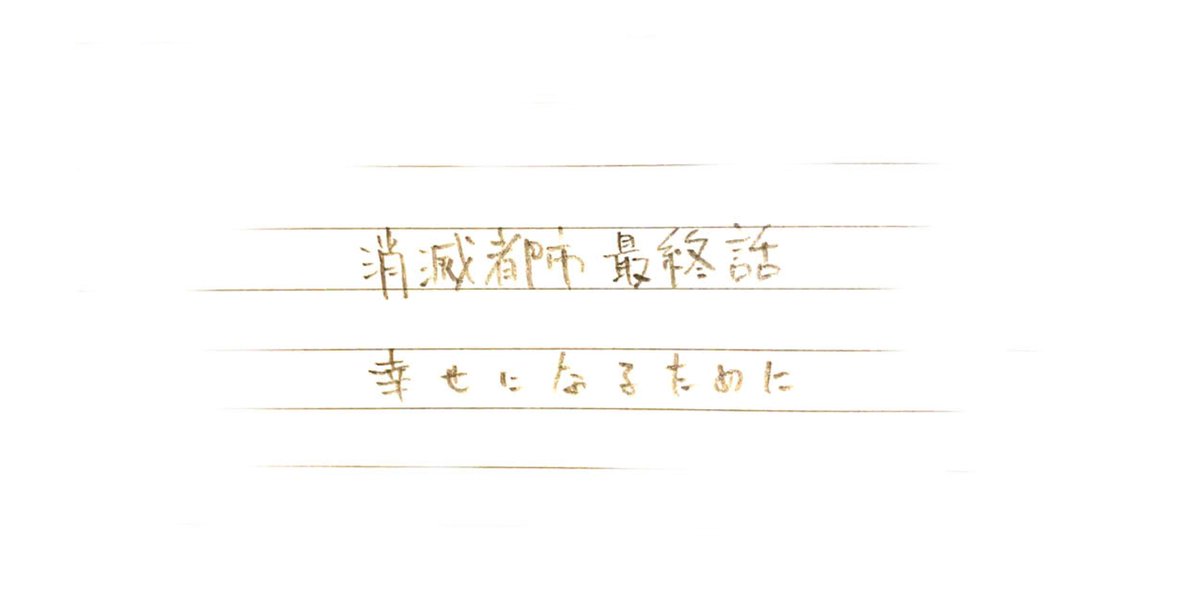 消滅都市 最終話
幸せになるために